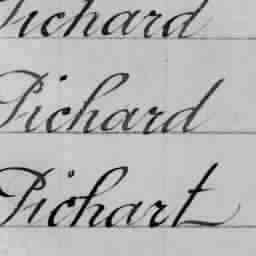 Pichard
Pichard
Pichart